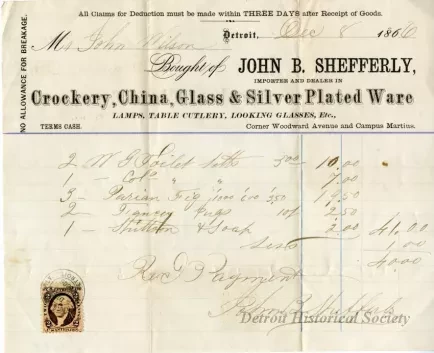 All Claims for Deduction must be made within THREE DAYS after Receipt of Goods.
NO ALLOWANCE FOR BREAKAGE.
Detroit, Dec 8 1866
M John Wilson
Bought of JOHN B. SHEFFERLY,
IMPORTER AND DEALER IN
Crockery, China, Glass & Silver Plated Ware
LAMPS, TABLE CUTLERY, LOOKING GLASSES, Etc.,
TERMS CASH. Corner Woodward Avenue and Campus Martius.
2 W G Toilet Setts 5.00 10.00
1 - Col'd " " 7.00
3 - Parian Fig 250
2 - Fancy 2.50
1 - & Soap 2.00 41.00
1.00
40.00
Rec'd Payment
John B Shefferly
Detroit Historical Society